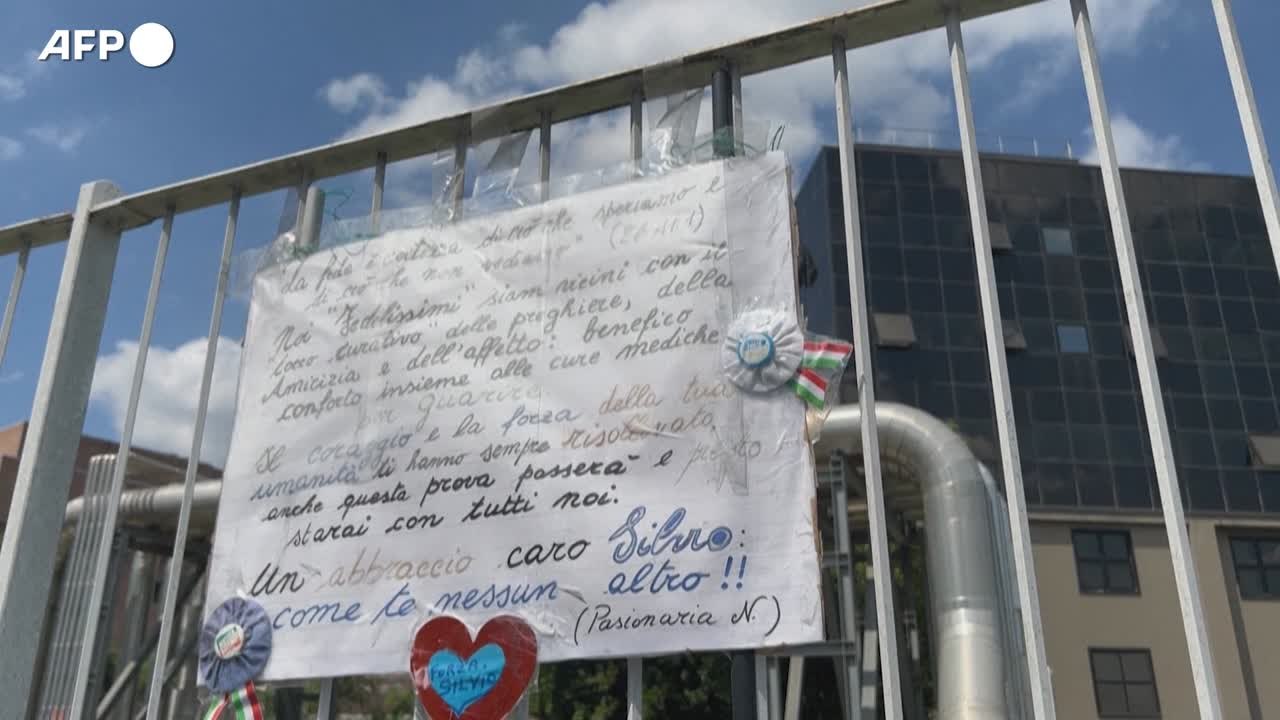 AFP
"La fede è certezza di ciò che speriamo e
di ciò che non vediamo"
Noi "Fedelissimi" siam vicini con il
tocco "curativo" delle preghiere, della
Amicizia e dell'affetto: benefico
conforto insieme alle cure mediche
per guarire.
Il coraggio e la forza della tua
umanità ti hanno sempre
anche questa prova passerà e presto
starai con tutti noi.
Un abbraccio caro Silvio:
come te nessun altro!!
(Pasionaria N.)
FORZA
SILVIO